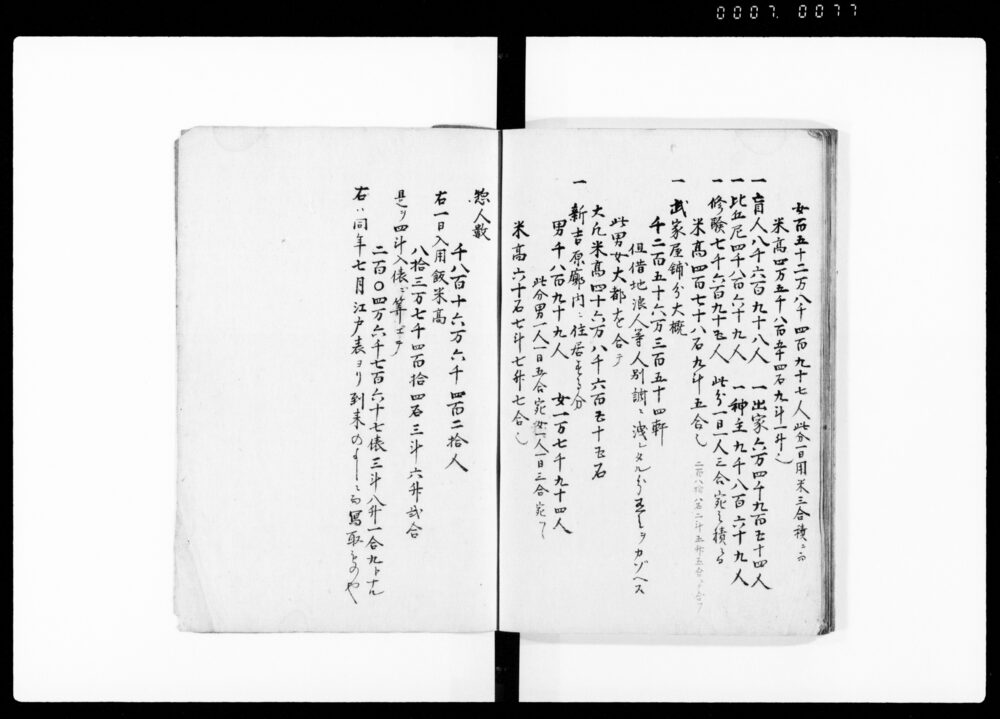 0007.0077
女百五十二万八千四百九十七人此分一日用米三合積ニ而
米高四万五千八百五十四石九斗一升也
一 盲人八千六百九十八人 一 出家六万四千九百五十四人
一 比丘尼四千八百六十九人 一 神主九千八百六十九人
一 修験七千六百九十五人 此分一日一人三合宛之積ニ而
米高四百七十八石九斗五合也
一 武家屋舗分大概
千二百五十六万三百五十四軒
但借地浪人等人別調ニ洩レタル分
此男女大都を合テ
大凡米高四十六万八千六百五十五石
一 新吉原廓内ニ住居
男千八百九十九人 女一万七千九十四人
此分男一人一日五合宛女一人一日三合宛
米高六十石七斗七升七合也
惣人数
千八百十六万六千四百二拾人
右一日入用飯米高
八拾三万七千四百拾四石三斗六升弐合
是ヲ四斗入俵ニ算
二百〇四万六千七百六十七俵三斗八升一合九ト
右ハ同年七月江戸表ヨリ到来の